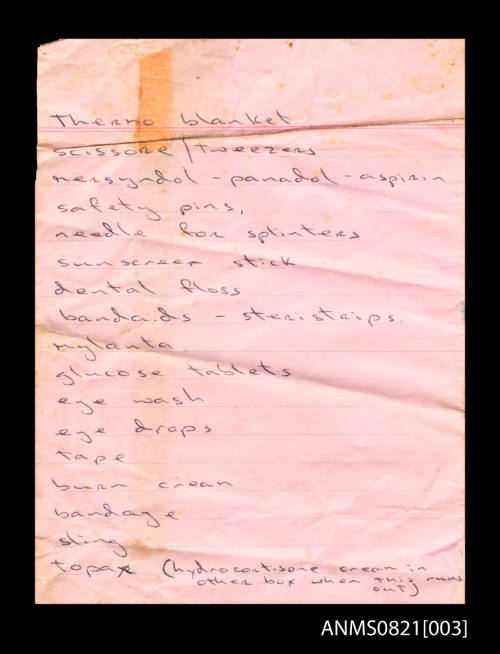 Thermo blanket
scissors/tweezers
mersyndol - panadol - aspirin
safety pins,
needle for splinters
sunscreen stick
dental floss
bandaids - steristrips.
mylanta.
glucose tablets
eye wash
eye drops
tape
burn cream
bandage
sling
topax (hydrocortisone cream in
other box when this runs
out)
ANMS0821[003]